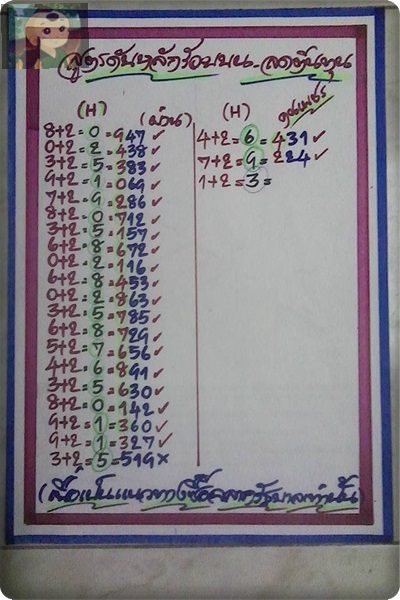 สูตรดับหลักร้อยบน-ลดต้นทุน
(H) (ผ่าน)
8+2=0=947 ✓
0+2=2=438 ✓
3+2=5=383 ✓
9+2=1=069 ✓
7+2=9=286 ✓
8+2=0=712 ✓
3+2=5=157 ✓
6+2=8=672 ✓
0+2=2=116 ✓
6+2=8=453 ✓
0+2=2=863 ✓
3+2=5=785 ✓
6+2=8=729 ✓
5+2=7=656 ✓
4+2=6=891 ✓
3+2=5=630 ✓
8+2=0=142 ✓
9+2=1=360 ✓
9+2=1=327 ✓
3+2=5=519 ×
(H)
4+2=6=431 ✓
7+2=9=224 ✓
1+2=3=
(เพื่อเป็นแนวทางซื้อสลากรัฐบาลเท่านั้น)